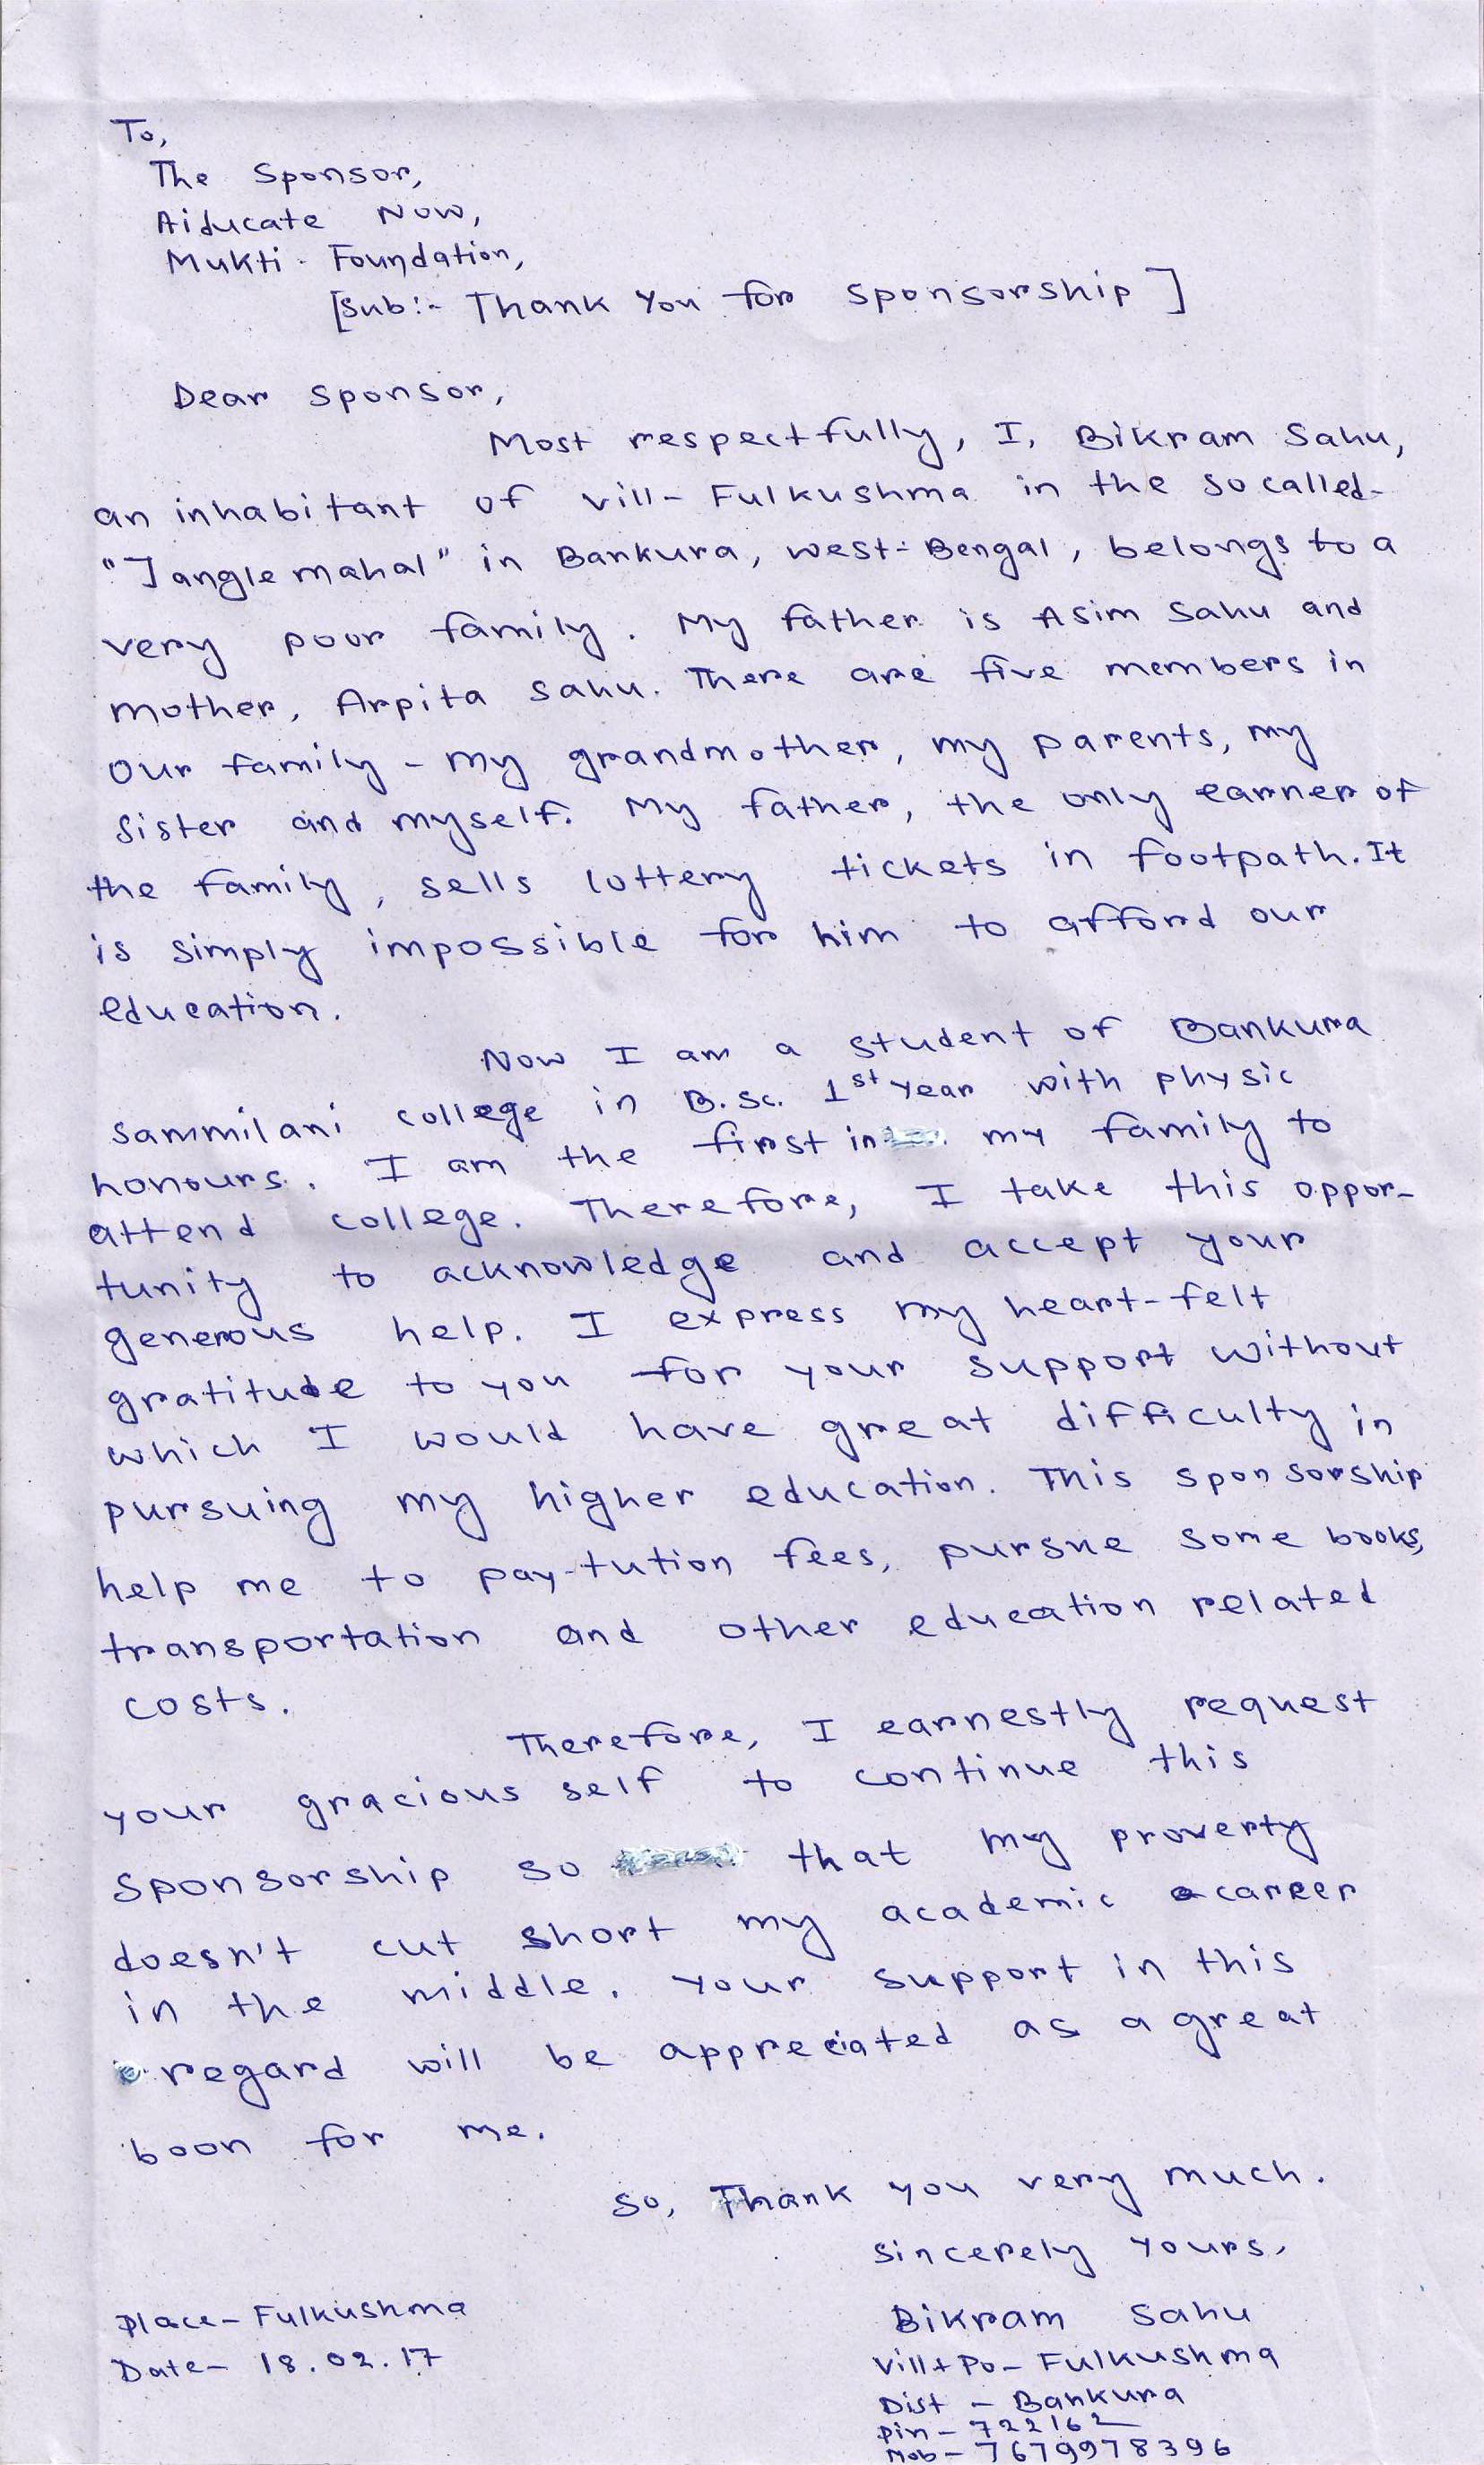 To,
The Sponsor,
Aiducate Now,
Mukti - Foundation,
[Sub:- Thank You for sponsorship]
Dear sponsor,
Most respectfully, I, Bikram Sahu,
an inhabitant of vill- Fulkushma in the so called-
"Janglemahal" in Bankura, west-Bengal, belongs to a
very poor family. My father is Asim Sahu and
mother, Arpita Sahu. There are five members in
our family - my grandmother, my parents, my
sister and myself. My father, the only earner of
the family, sells lottery tickets in footpath. It
is simply impossible for him to afford our
education.
Now I am a student of Bankura
Sammilani college in B.Sc. 1st year with physic
honours. I am the first in my family to
attend college. Therefore, I take this oppor-
tunity to acknowledge and accept your
generous help. I express my heart-felt
gratitude to you for your support without
which I would have great difficulty in
pursuing my higher education. This sponsorship
help me to pay-tution fees, pursue some books,
transportation and other education related
costs.
Therefore, I earnestly request
your gracious self to continue this
sponsorship so that my proverty
doesn't cut short my academic career
in the middle. Your support in this
regard will be appreciated as a great
boon for me.
So, Thank you very much.
Sincerely Yours,
Place- Fulkushma
Date- 18.02.17
Bikram Sahu
Vill+Po- Fulkushma
Dist - Bankura
Pin- 722162
Mob- 7679978396